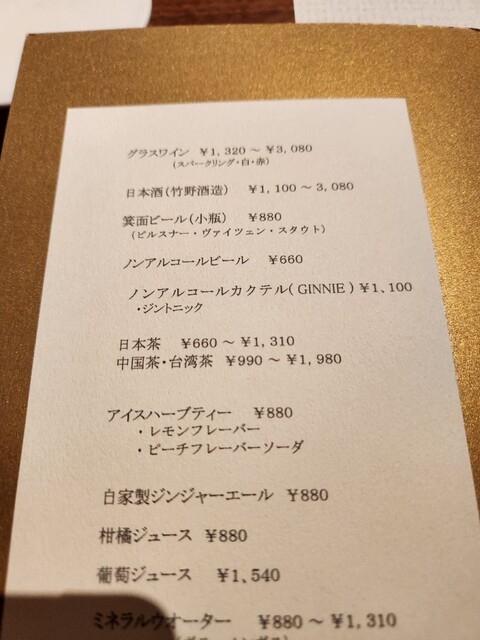 グラスワイン ¥1,320 ～ ¥3,080
(スパークリング・白・赤)
日本酒(竹野酒造) ¥1,100 ～ 3,080
箕面ビール(小瓶) ¥880
(ピルスナー・ヴァイツェン・スタウト)
ノンアルコールビール ¥660
ノンアルコールカクテル( GINNIE ) ¥1、100
・ジントニック
日本茶 ¥660 ～ ¥1,310
中国茶・台湾茶 ¥990 ～ ¥1,980
アイスハーブティー ¥880
・レモンフレーバー
・ピーチフレーバーソーダ
自家製ジンジャーエール ¥880
柑橘ジュース ¥880
葡萄ジュース ¥1、540
ミネラルウオーター ¥880 ～ ¥1,310